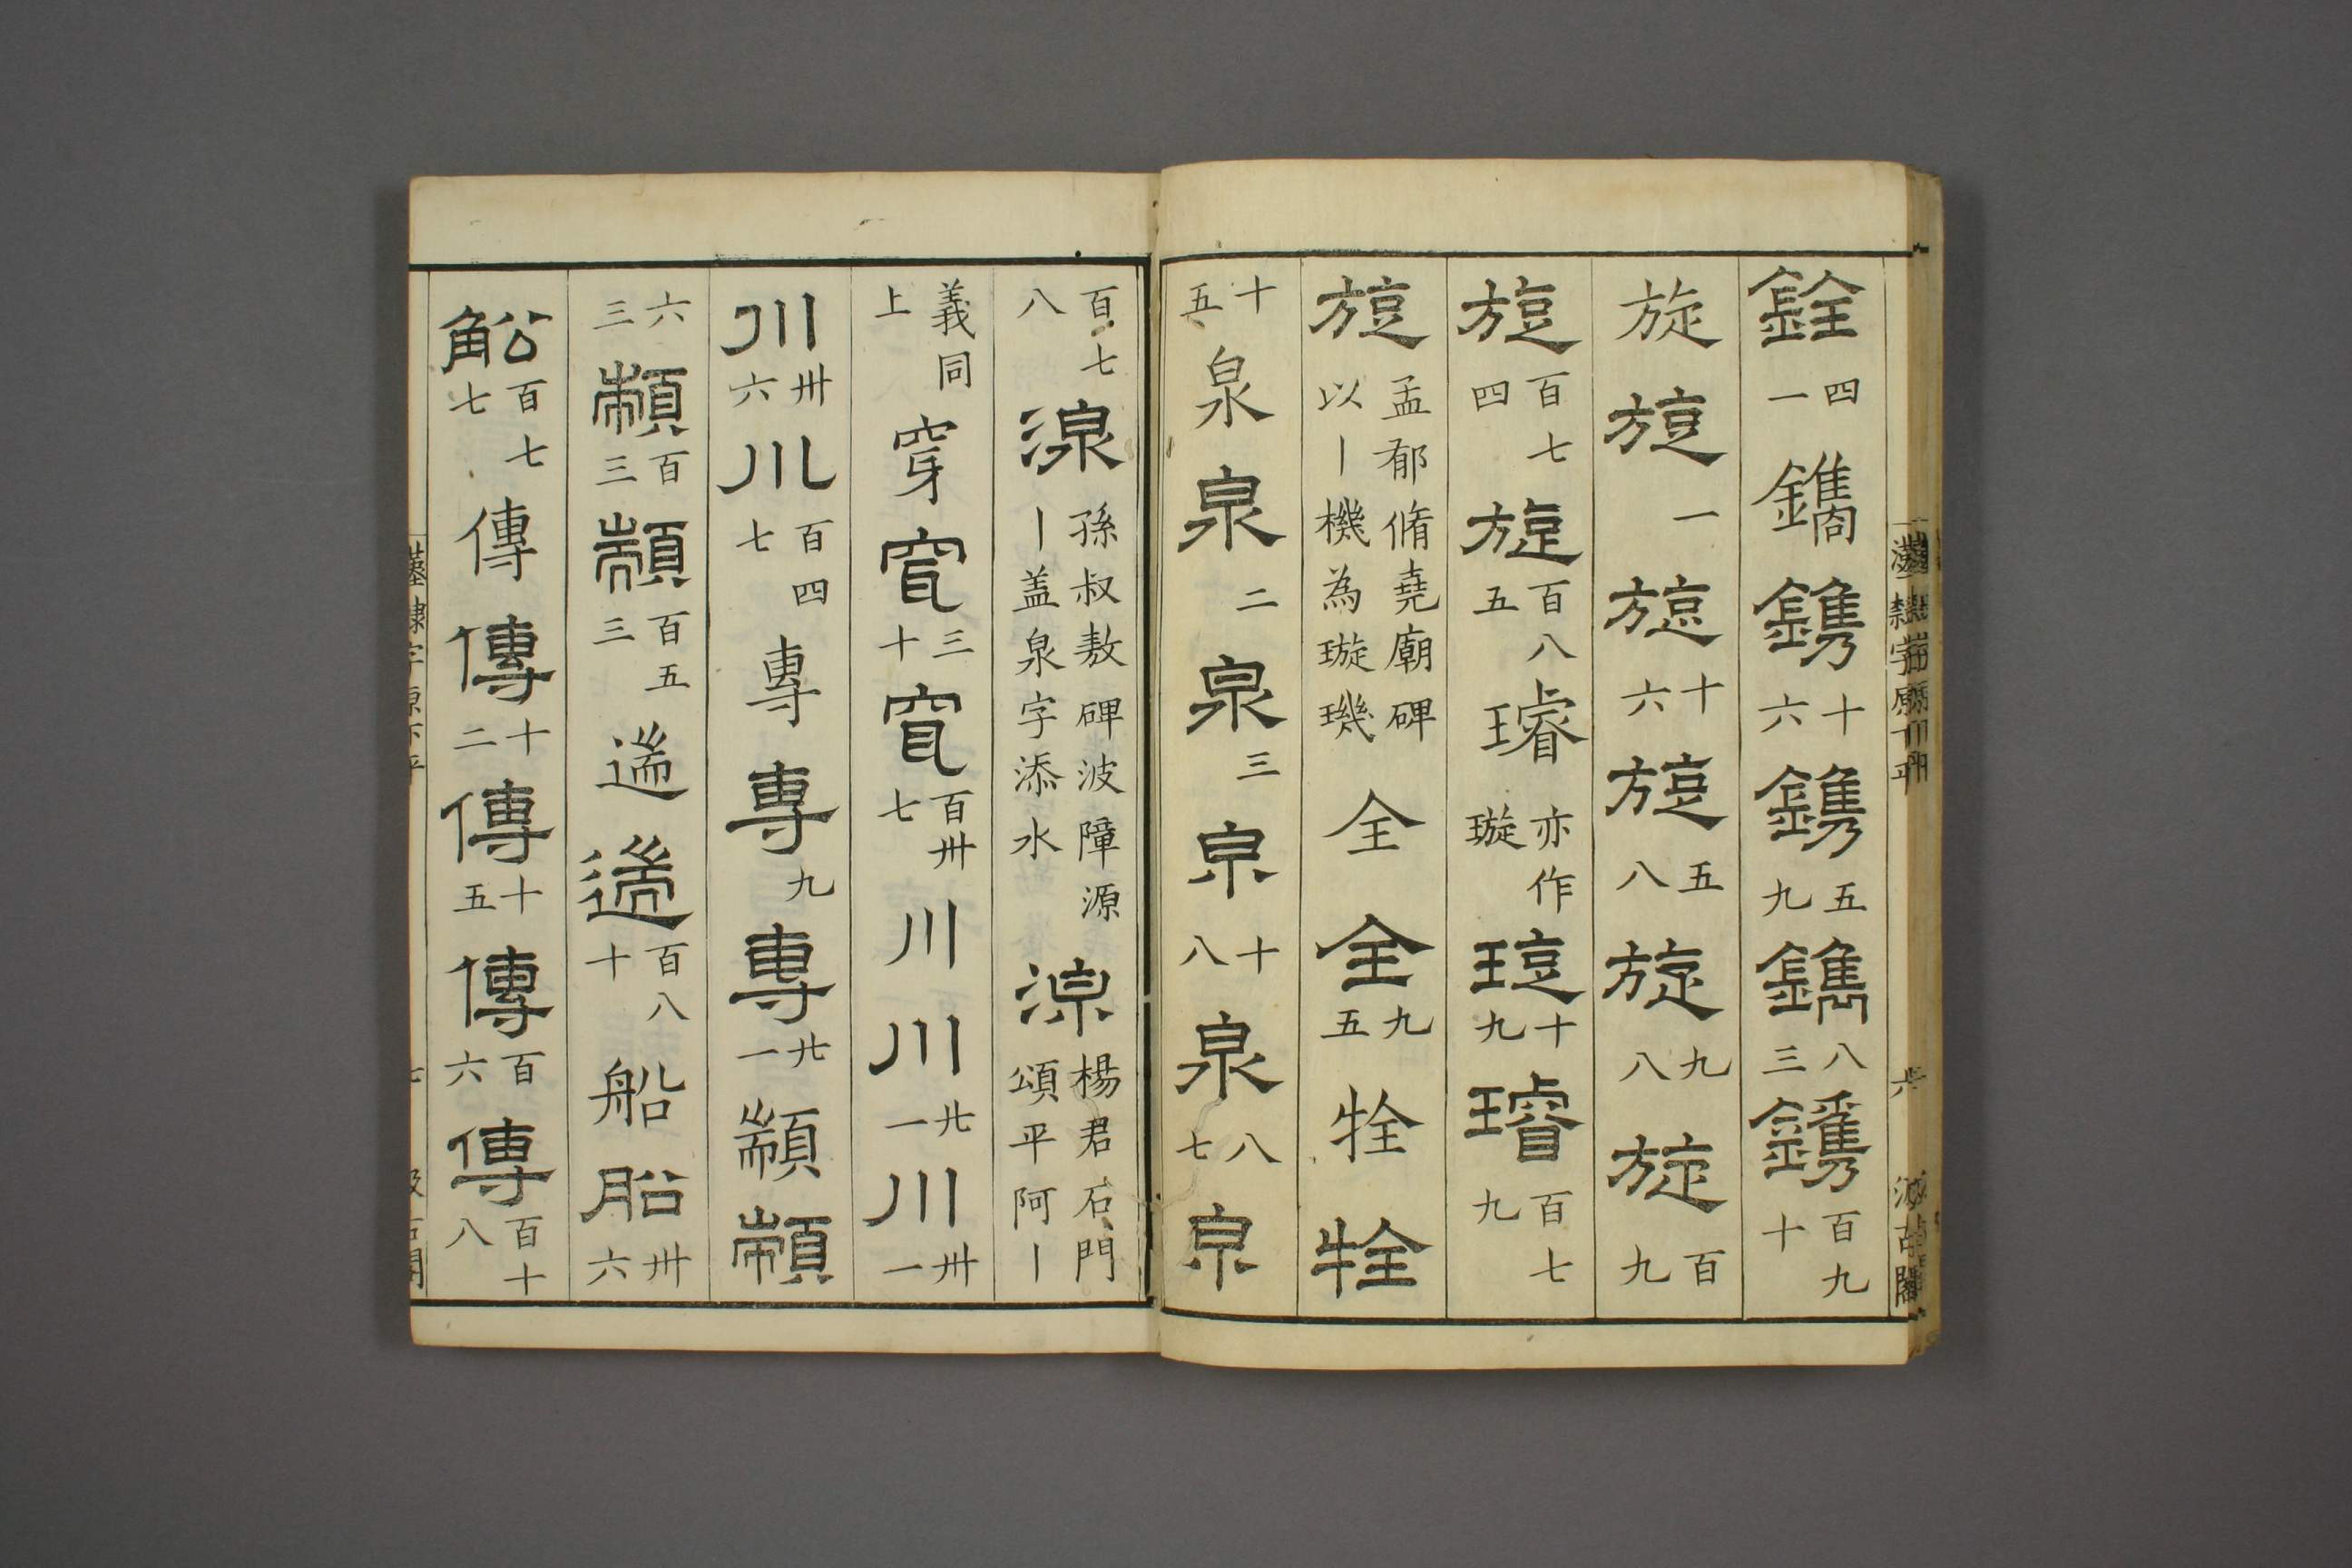 銓四一鐫鐫十六鐫五九鐫八三鐫百九十
旋旋一旋十六旋五八旋九八旋百九
旋百七四旋百八五璿亦作璇琁十九璿百七九
旋孟郁脩堯廟碑以丨機為璇璣全全九五牷牷
十五泉泉二泉三泉十八泉八七泉
百七八湶孫叔敖碑波障源丨盖泉字添水湶楊君石門頌平阿丨
義同上穿穿三十穿百卅七川川廿一川卅一
川卅六川百四七專專九專廿一顓顓
六三顓百三顓百五三遄遄百八十船船卅六
船百七七傳傳十二傳十五傳百六傳百十八
漢隷字源下平
七
汲古閣